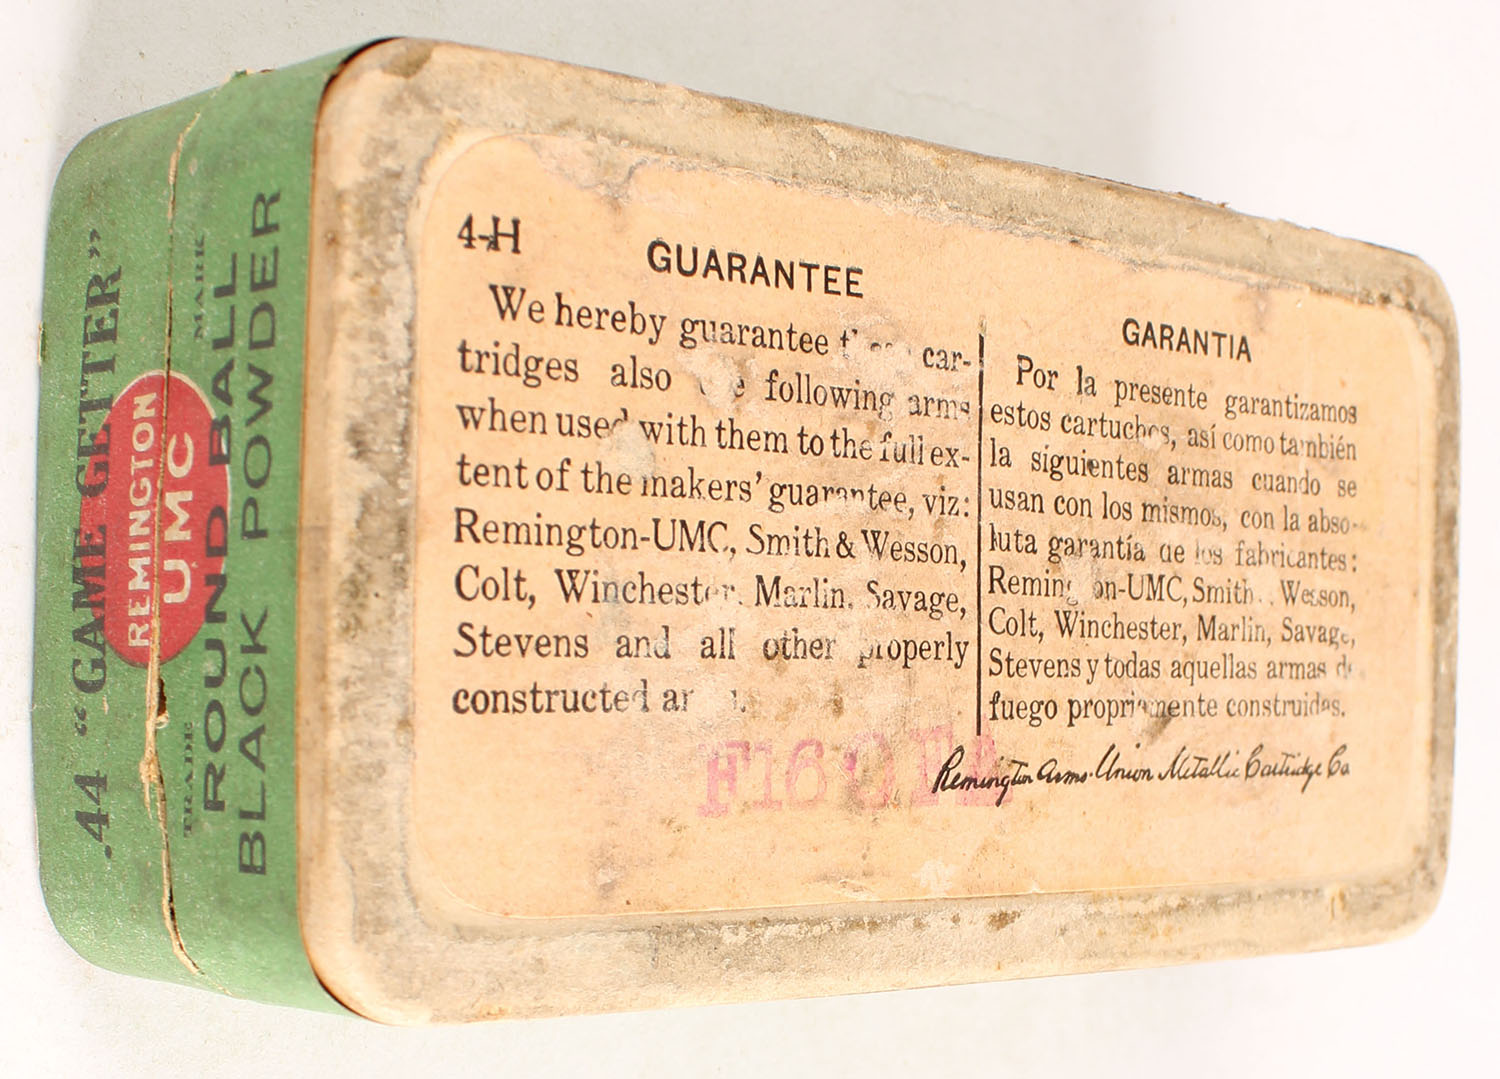 .44 "GAME GETTER"
REMINGTON
UMC
TRADE MARK
ROUND BALL
BLACK POWDER
4-H
GUARANTEE
We hereby guarantee car-
tridges also following arms
when used with them to the full ex-
tent of the makers' guarantee, viz:
Remington-UMC, Smith & Wesson,
Colt, Winchester, Marlin, Savage,
Stevens and all other properly
constructed
GARANTIA
Por la presente garantizamos
estos cartuchos, así como también
la siguientes armas cuando se
usan con los mismos, con la abso-
luta garantía de los fabricantes:
Remington-UMC, Smith Wesson,
Colt, Winchester, Marlin, Savage,
Stevens y todas aquellas armas de
fuego propriamente construidas.
Remington Arms-Union Metallic Cartridge Co